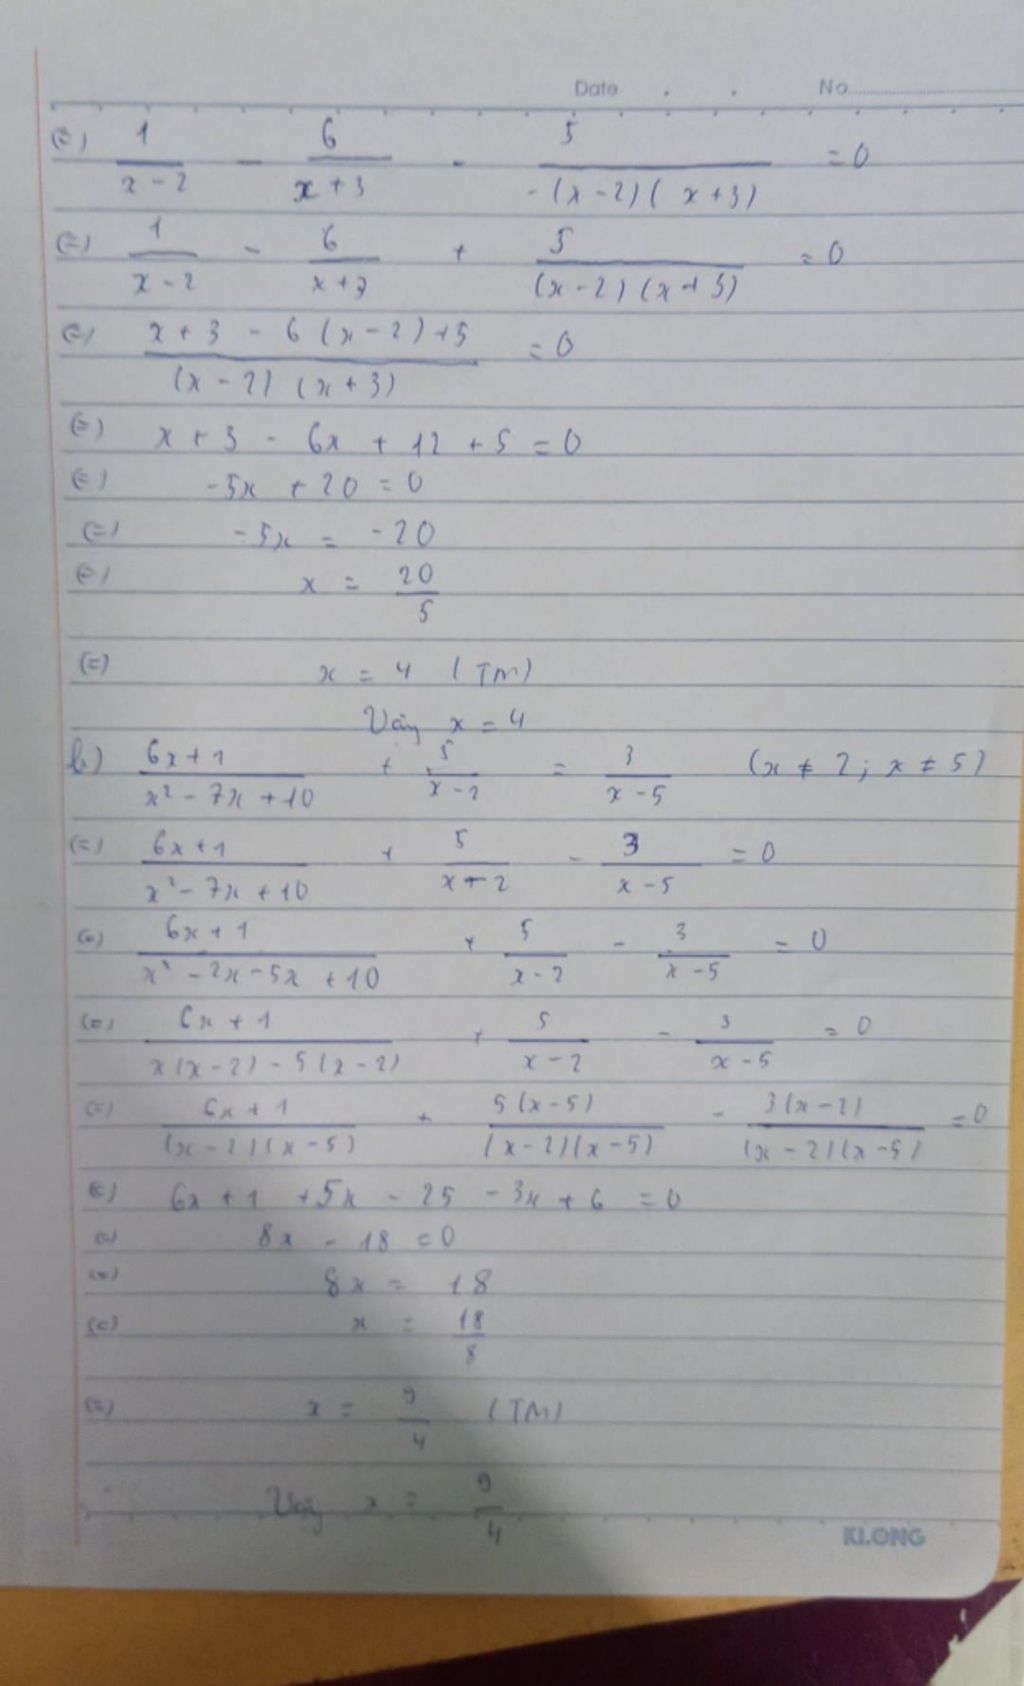 Date . . No
(=) 1/(x - 2) - 6/(x + 3) - 5/(-(x - 2)(x + 3)) = 0
(=) 1/(x - 2) - 6/(x + 3) + 5/((x - 2)(x + 3)) = 0
(=) (x + 3 - 6(x - 2) + 5)/((x - 2)(x + 3)) = 0
(=) x + 3 - 6x + 12 + 5 = 0
(=) -5x + 20 = 0
(=) -5x = -20
(=) x = 20/5
(=) x = 4 (TM)
Vậy x = 4
b) (6x + 1)/(x² - 7x + 10) + 5/(x - 2) = 3/(x - 5) (x ≠ 2; x ≠ 5)
(=) (6x + 1)/(x² - 7x + 10) + 5/(x - 2) - 3/(x - 5) = 0
(=) (6x + 1)/(x² - 2x - 5x + 10) + 5/(x - 2) - 3/(x - 5) = 0
(=) (6x + 1)/(x(x - 2) - 5(x - 2)) + 5/(x - 2) - 3/(x - 5) = 0
(=) (6x + 1)/((x - 2)(x - 5)) + 5(x - 5)/((x - 2)(x - 5)) - 3(x - 2)/((x - 2)(x - 5)) = 0
(=) 6x + 1 + 5x - 25 - 3x + 6 = 0
(=) 8x - 18 = 0
(=) 8x = 18
(=) x = 18/8
(=) x = 9/4 (TM)
Vậy x = 9/4
KLONG